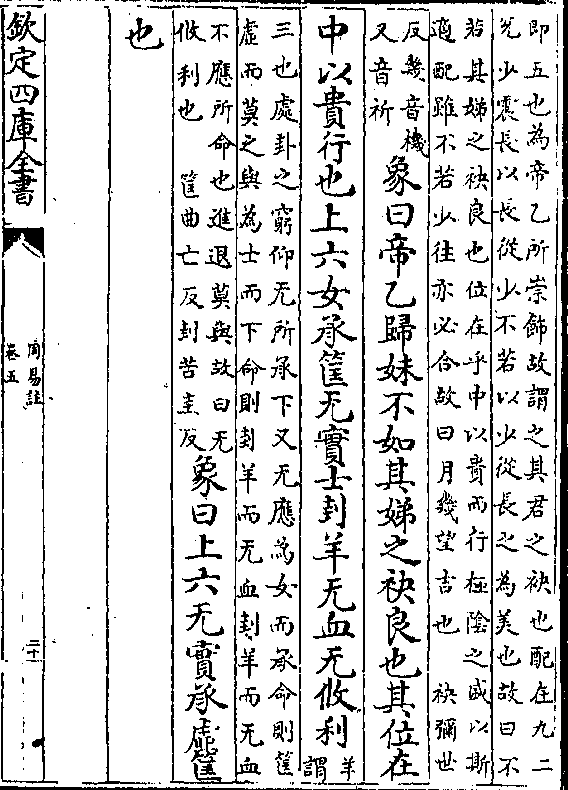 即五也為帝乙所崇飾故謂之其君之袂也配在九二
兌少震長以長從少不若以少從長之為美也故曰不
若其娣之袂良也位在乎中以貴而行極陰之盛以斯
適配雖不若少往亦必合故曰月幾望吉也 袂彌世
反幾音機
又音祈
象曰帝乙歸妹不如其娣之袂良也其位在
中以貴行也上六女承筐无實士刲羊无血无攸利
羊
謂
三也處卦之窮仰无所承下又无應為女而承命則筐
虛而莫之與為士而下命則刲羊而无血刲羊而无血
不應所命也進退莫與故曰无
攸利也 筐曲亡反刲苦圭反
象曰上六无實承虛筐
也
欽定四庫全書
周易註
卷五